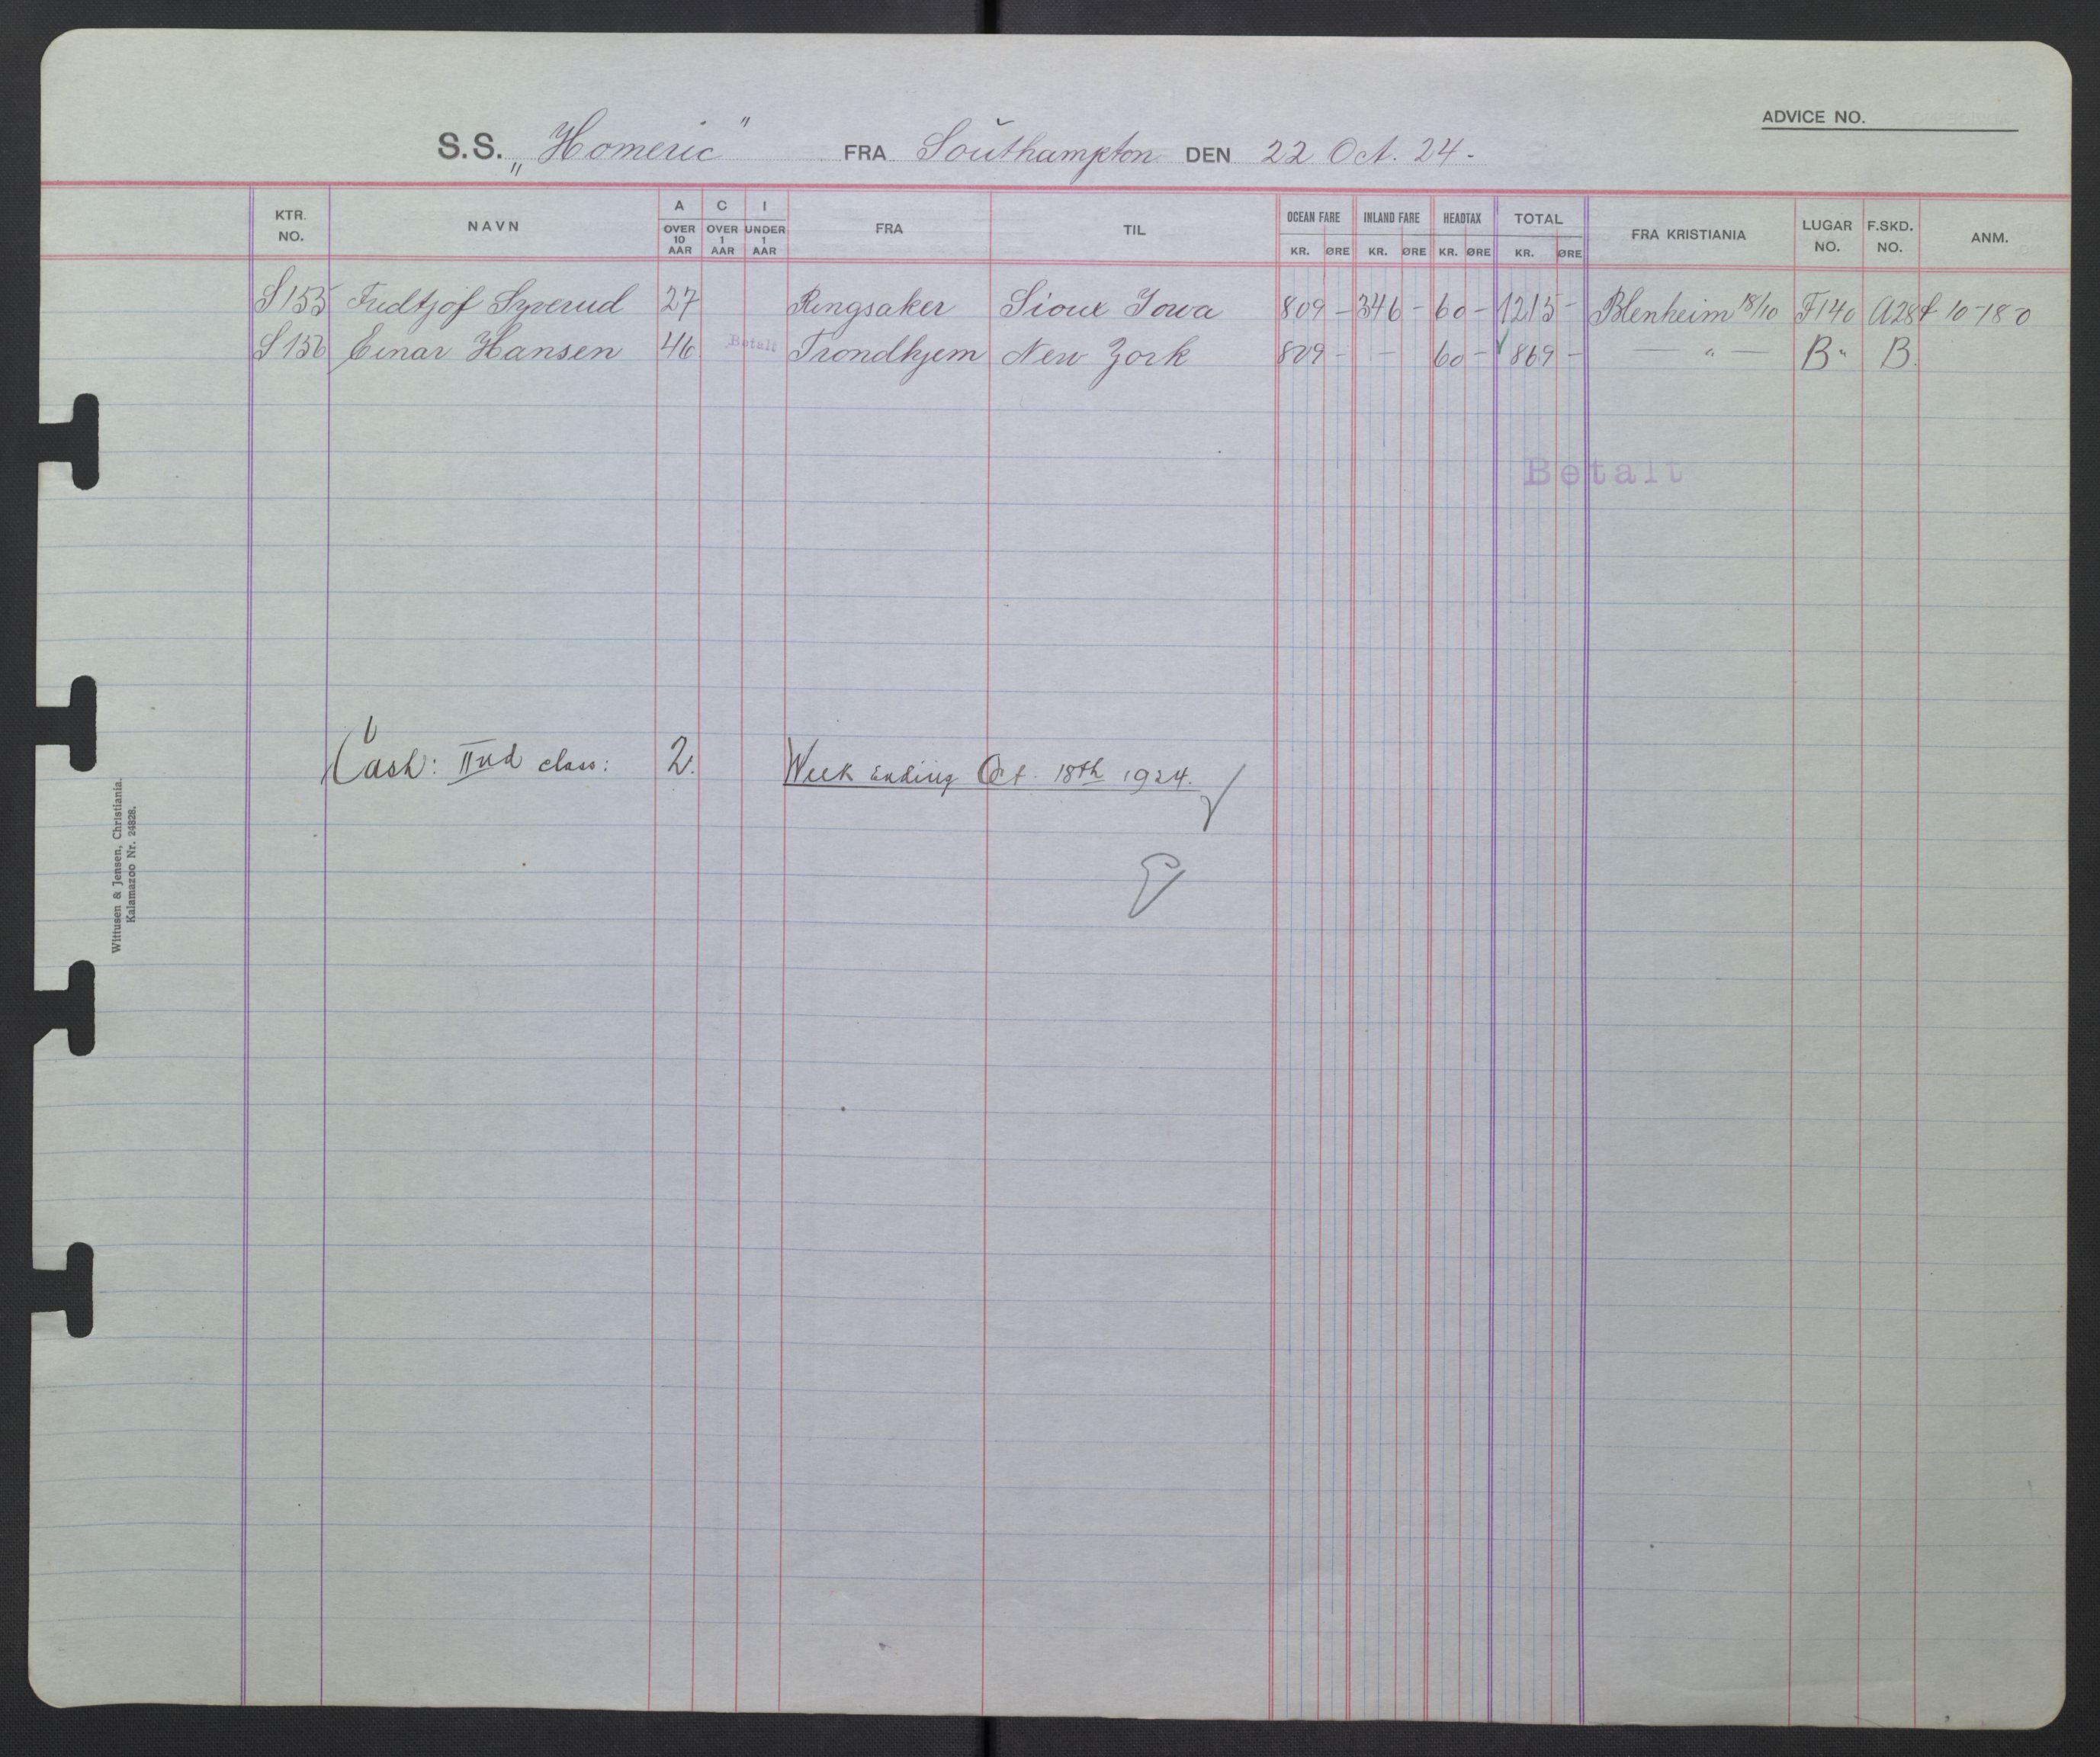 ADVICE NO.
S.S. „Homeric" FRA Southampton DEN 22 Oct. 24.-
KTR. NO. NAVN A OVER 10 AAR C OVER 1 AAR I UNDER 1 AAR FRA TIL OCEAN FARE KR. ØRE INLAND FARE KR. ØRE HEADTAX KR. ØRE TOTAL KR. ØRE FRA KRISTIANIA LUGAR NO. F.SKD. NO. ANM.
S155 Fridtjof Syverud 27 Ringsaker Sioux Iowa 809 - 346 - 60 - 1215 - Blenheim 18/10 F140 A28 £ 10-18-0
S156 Einar Hansen 46 Betalt Trondhjem New York 809 - - 60 - 869 - — " — B " B.
Betalt
Cash: IInd class: 2. Week ending Oct. 18th 1924.
Wittusen & Jensen, Christiania.
Kalamazoo Nr. 24828.